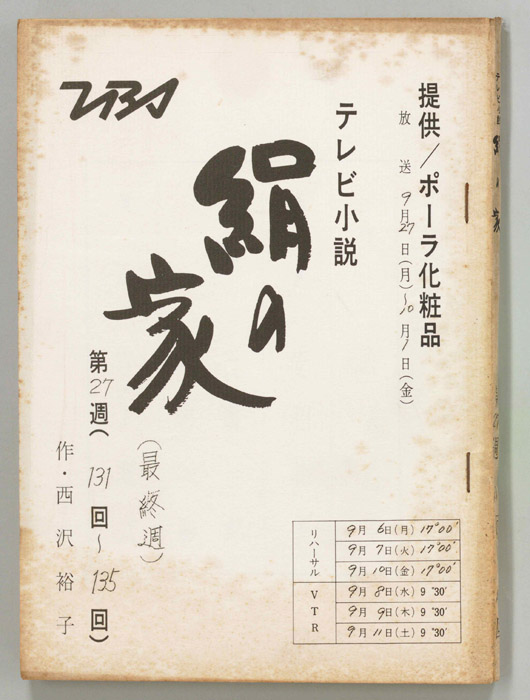 提供/ポーラ化粧品
放送 9月27日(月)～10月1日(金)
テレビ小説
TBS
絹の家
第27週(131回～135回)
(最終週)
作・西沢裕子
リハーサル
9月6日(月) 17°00'
9月7日(火) 17°00'
9月10日(金) 17°00'
VTR
9月8日(水) 9°30'
9月9日(木) 9°30'
9月11日(土) 9°30'
テレビ小説 絹の家